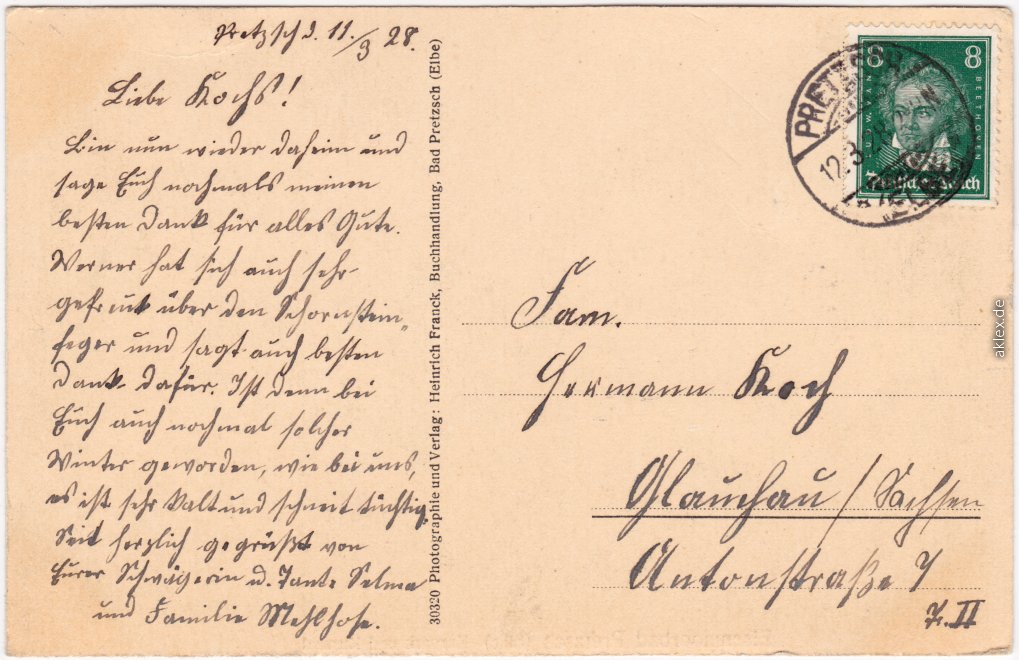 Pretzsch d. 11./3 28.
Liebe Kochs!
Bin nun wieder daheim und
sage Euch nochmals meinen
besten Dank für alles Gute.
Werner hat sich auch sehr
gefreut über den Schornstein-
feger und sagt auch besten
Dank dafür. Ist denn bei
Euch auch nochmal solcher
Winter geworden, wie bei uns,
es ist sehr kalt und schneit tüchtig.
Seid herzlich gegrüßt von
Eurer Schwägerin u. Tante Selma
und Familie Mehlhose.
30320 Photographie und Verlag: Heinrich Franck, Buchhandlung, Bad Pretzsch (Elbe)
8 8
L.V.VAN BEETHOVEN
Deutsches Reich
PRETZSCH
12.3.28
(ELBE)
Fam.
Hermann Koch
Glauchau / Sachsen
Antonstraße 7
II
aklex.de